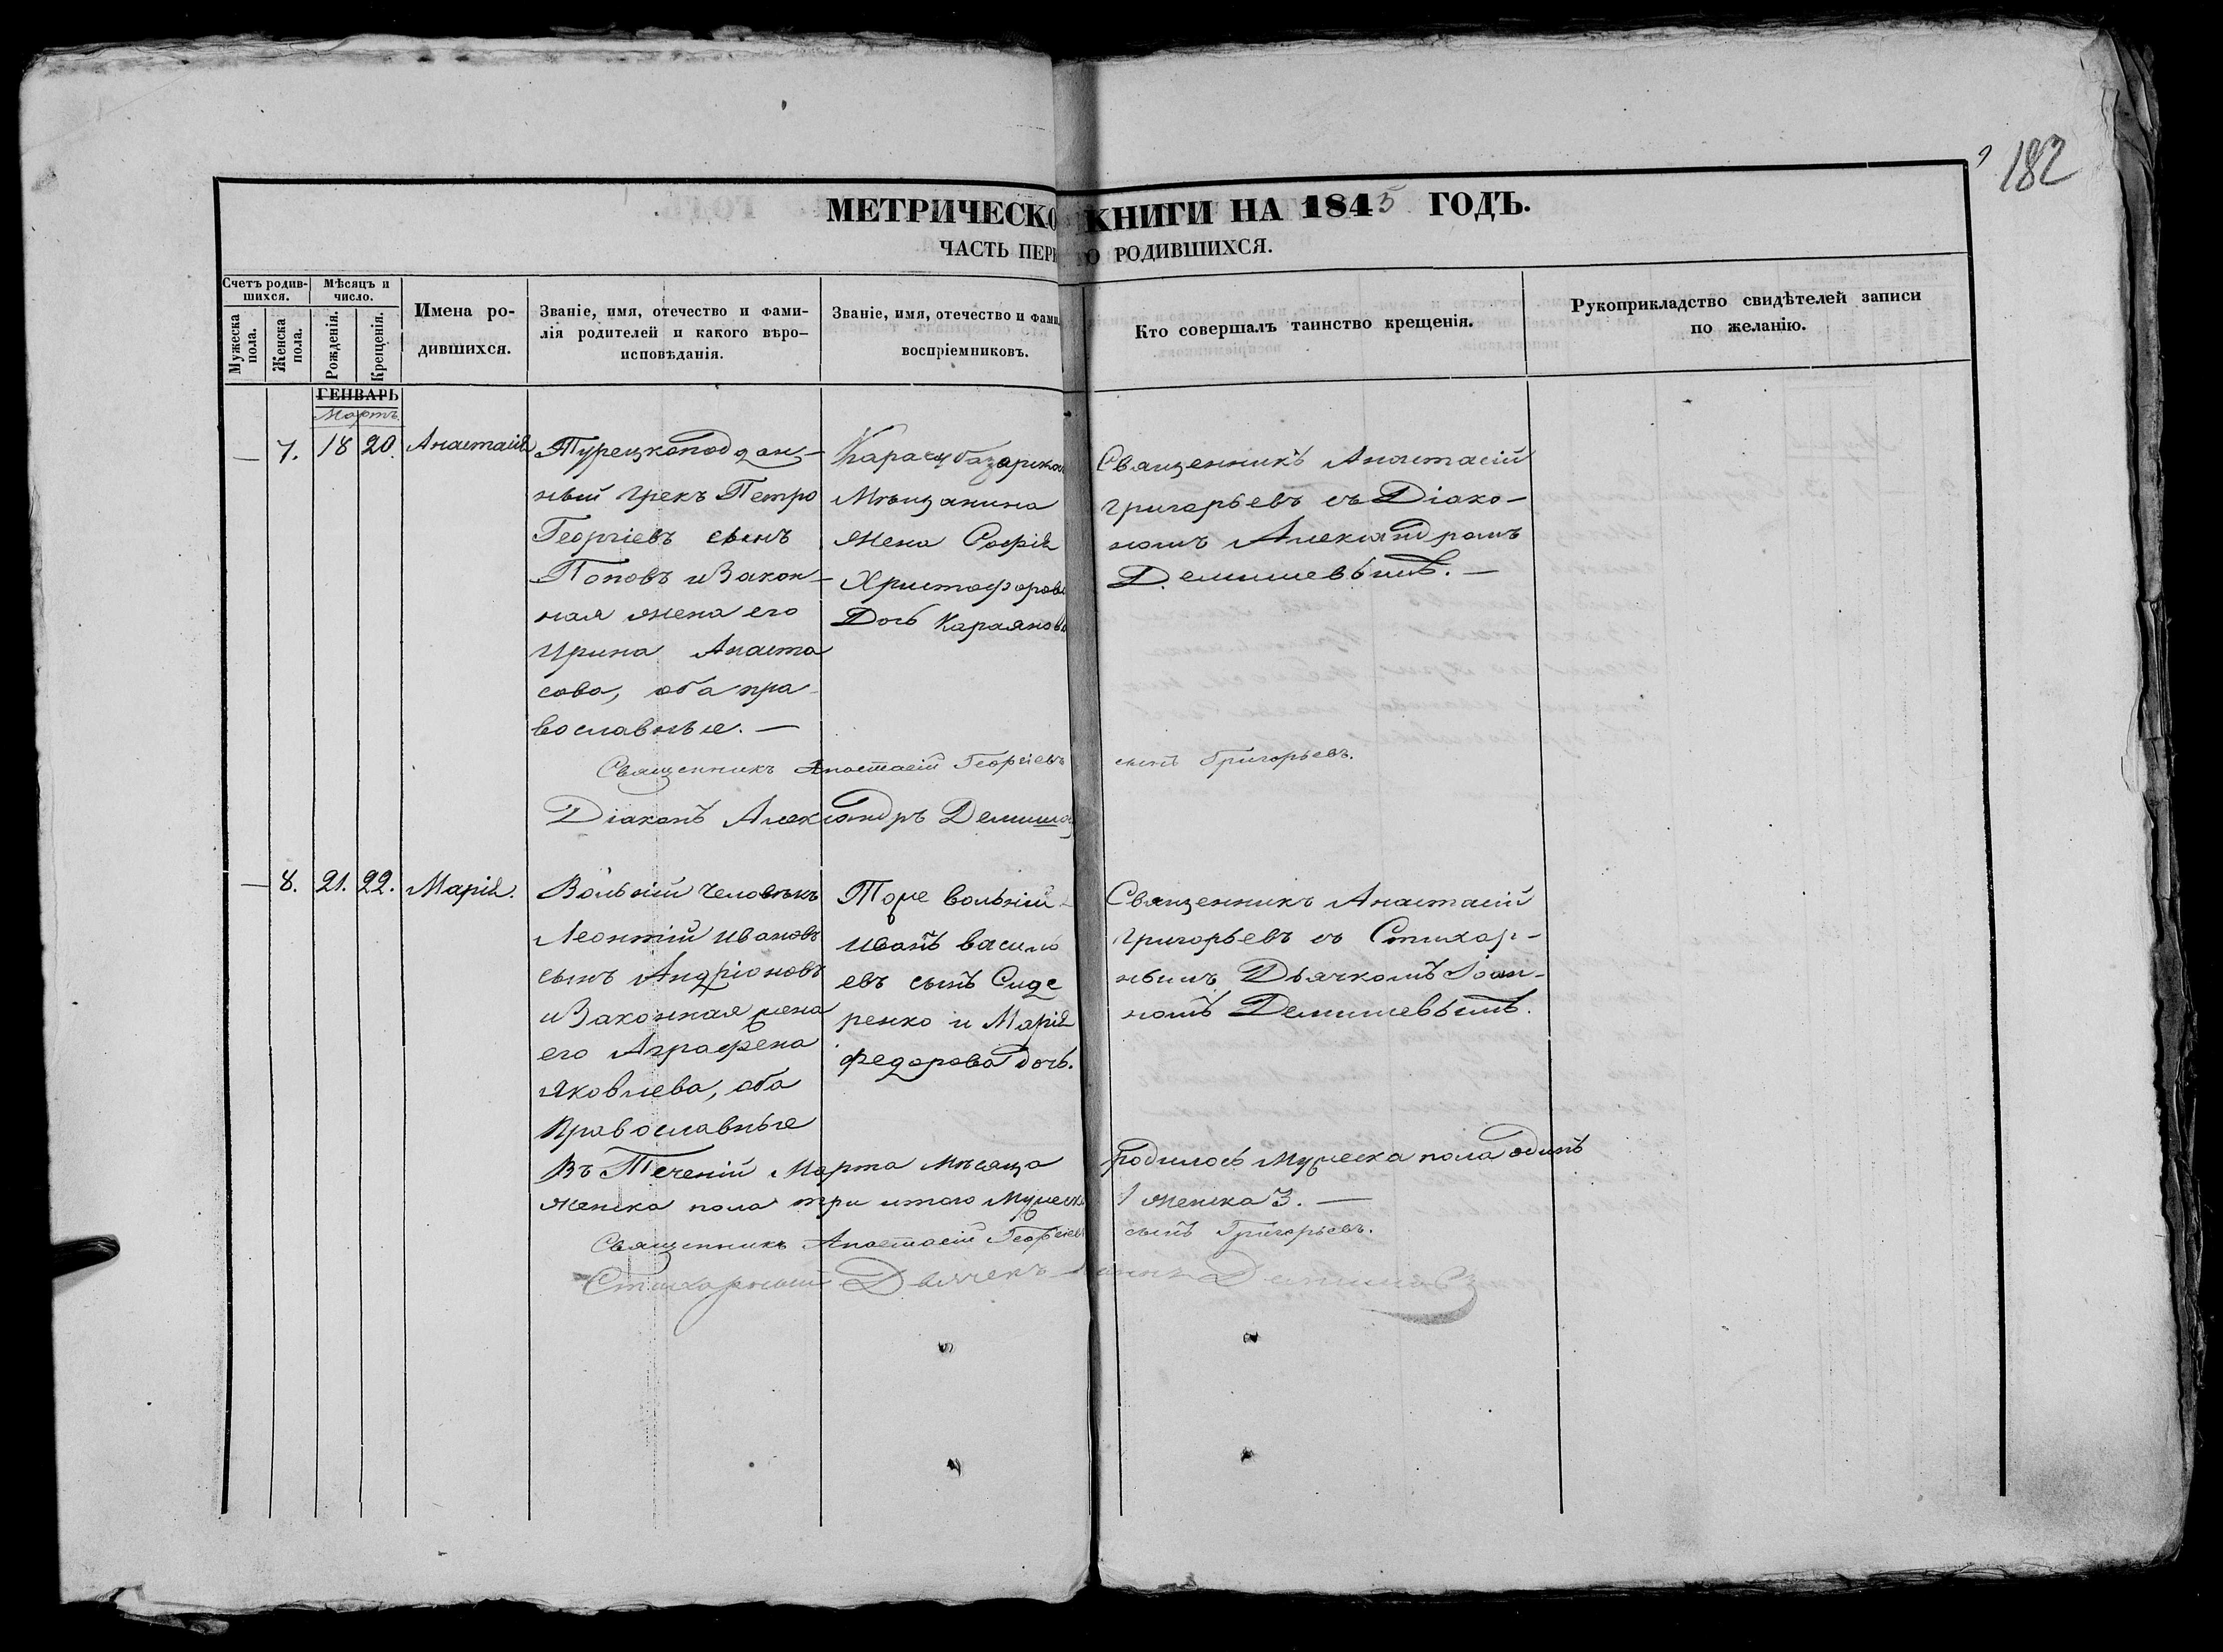 182
МЕТРИЧЕСКО КНИГИ НА 1845 ГОДЪ.
ЧАСТЬ ПЕР О РОДИВШИХСЯ.
Счетъ родившихся.
Мужеска пола.
Женска пола.
Мѣсяцъ и число.
Рожденія.
Крещенія.
Имена родившихся.
Званіе, имя, отечество и фами-
лія родителей и какого вѣро-
исповѣданія.
Званіе, имя, отечество и фами
воспріемниковъ.
Кто совершалъ таинство крещенія.
Рукоприкладство свидѣтелей записи
по желанію.
ГЕНВАРЬ
Мартъ
— 7. 18 20. Анастасія
Турецкоподдан-
ный грекъ Петро
Георгіевъ сынъ
Поповъ и Закон-
ная жена его
Ирина Анаста
сова, оба пра-
вославные. —
Карасубазарскаго
Мѣщанина
жена Софія
Христофорова
Дочь Караянова
Священникъ Анастасій
григорьевъ съ Діако-
номъ Александромъ
Демишевымъ. —
Священникъ Анастасій Георгіевъ сынъ Григорьевъ.
Діаконъ Александръ Демишев
— 8. 21. 22. Марія.
Вольній Человѣкъ
Леонтій Ивановъ
сынъ Андріоновъ
и Законная жена
его Аграфена
Яковлева, оба
Православные
Тоже вольній
Иванъ василь
евъ сынъ Сиде
ренко и Марія
Федорова дочь.
Священникъ Анастасій
григорьевъ съ Стихар-
нымъ Дьячкомъ Іоан-
номъ Демишевымъ.
Въ Теченій Марта Мѣсяца родилось Мужеска пола одинъ
женска пола три итого Мужеска 1 женска 3. —
Священникъ Анастасій Георгіевъ сынъ Григорьевъ.
Стихарный Дьячекъ Демишевъ